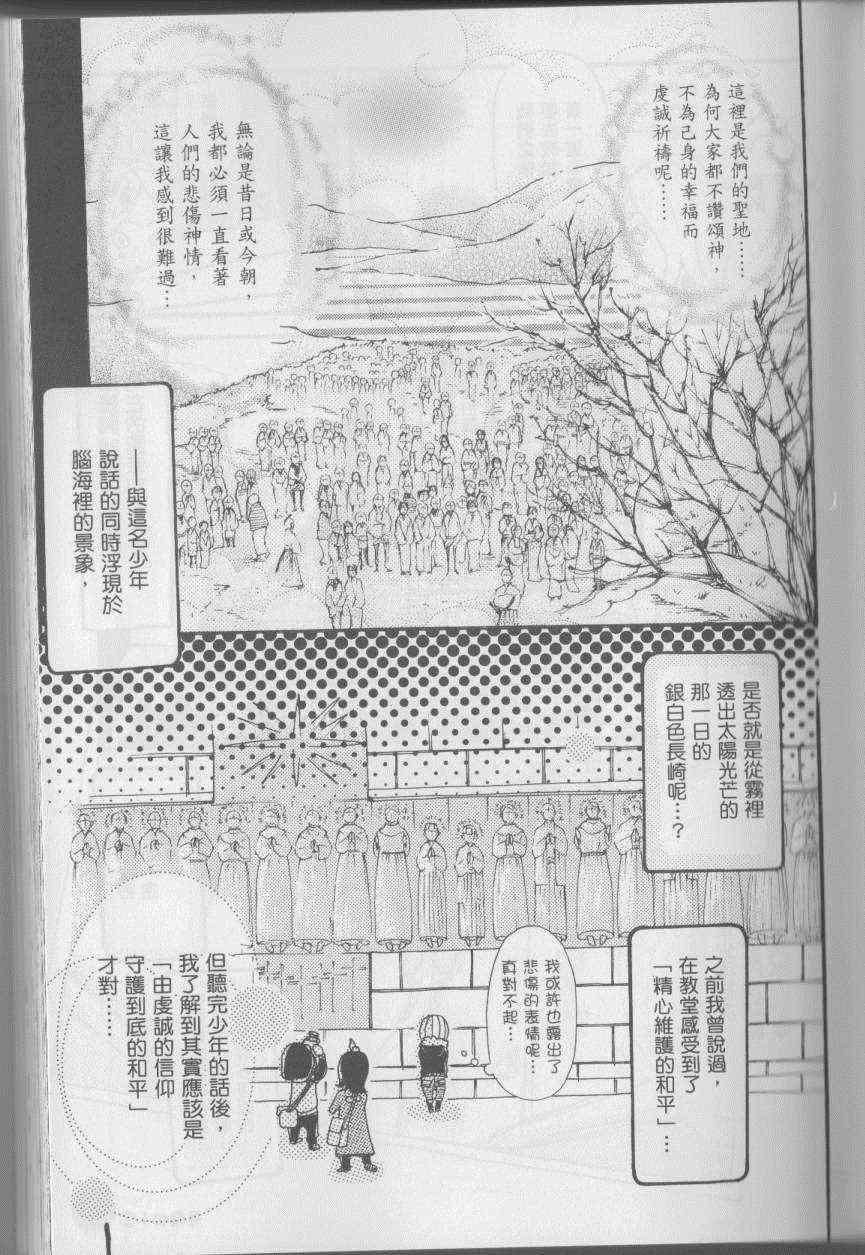 這裡是我們的聖地……
為何大家都不讚頌神，
不為己身的幸福而
虔誠祈禱呢……
無論是昔日或今朝，
我都必須一直看著
人們的悲傷神情，
這讓我感到很難過…
——與這名少年
說話的同時浮現於
腦海裡的景象，
是否就是從霧裡
透出太陽光芒的
那一日的
銀白色長崎呢…？
之前我曾說過，
在教堂感受到了
「精心維護的和平」…
我或許也露出了
悲傷的表情呢…
真對不起…
但聽完少年的話後，
我了解到其實應該是
「由虔誠的信仰
守護到底的和平」
才對……